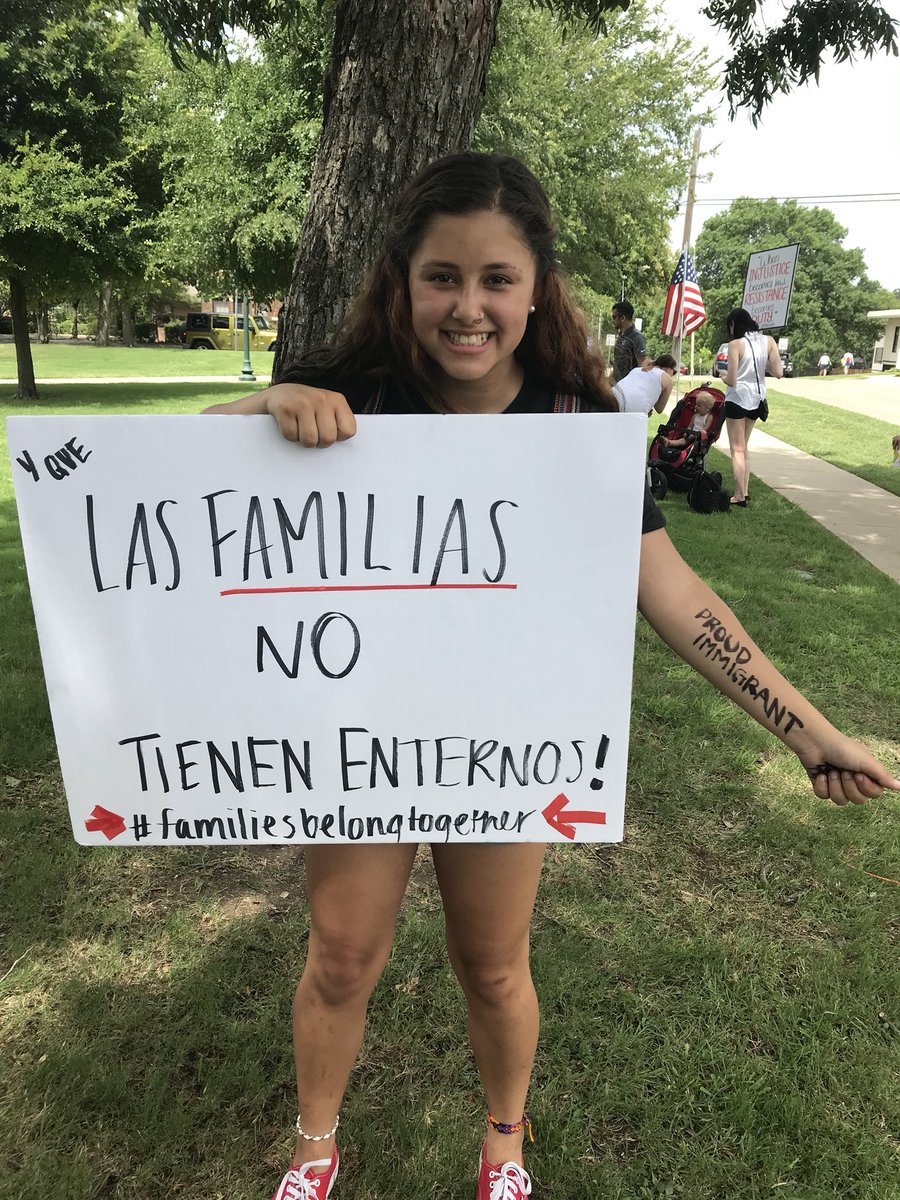 Y QUE
LAS FAMILIAS
NO
TIENEN ENTERNOS!
#familiesbelongtogether
PROUD
IMMIGRANT
"When
INJUSTICE
becomes law,
RESISTANCE
becomes
DUTY"